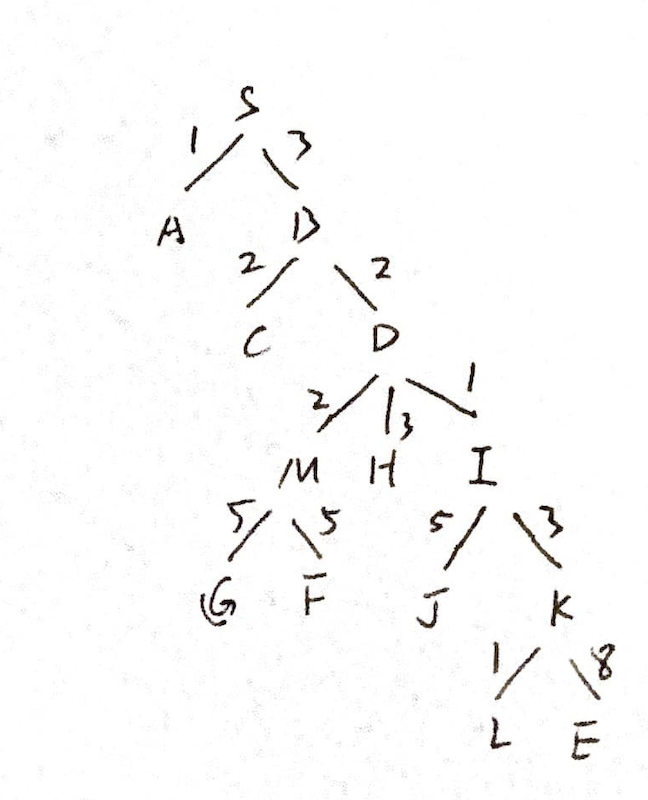 S
1 3
A B
2 2
C D
2 3 1
M H I
5 5 5 3
G F J K
1 8
L E